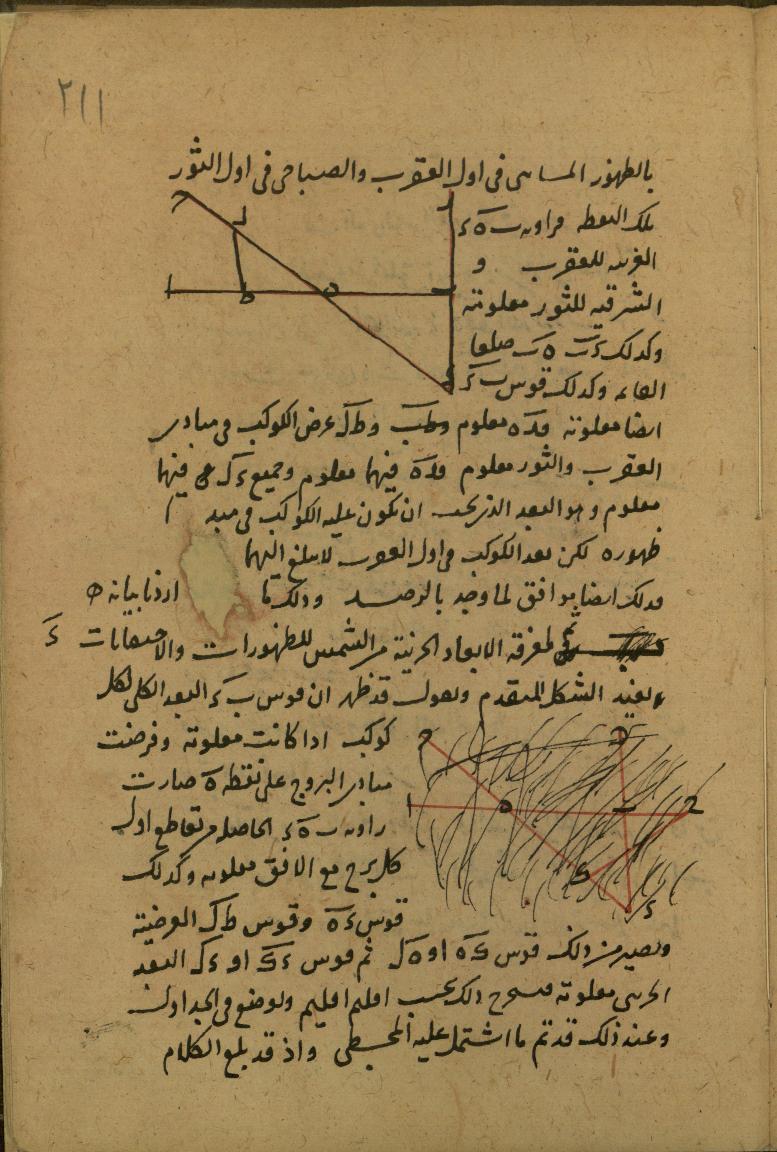 ٢١١
بالظهور المسائى فى اول العقرب والصباحى فى اول الثور
تلك النقطة فزاوية ب ه د
الغربية للعقرب و
الشرقيه للثور معلومة
وكذلك د ب ه ب ضلعا
القايمة وكذلك قوس ب د
ايضا معلومة فد ه معلوم وط ب و ط ل عرض الكوكب فى مبادى
العقرب والثور معلوم فل ه فيهما معلوم وجميع د ل فيهما
معلوم وهو البعد الذى يجب ان يكون عليه الكوكب فى مبدا
ظهوره لكن بعد الكوكب فى اول العقرب لا يبلغ اليهما
فذلك ايضا موافق لما وجد بالرصد وذلك ما اردنا بيانه
لمعرفة الابعاد الجزئية من الشمس للظهورات والاختفاءات
ونعيد الشكل المتقدم ونقول قد ظهر ان قوس ب د البعد الكلى لكل
كوكب اذا كانت معلومة وفرضت
مبادى البروج على نقطة ه صارت
زاوية ب ه د الحاصلة من تقاطع اول
كل برج مع الافق معلومه وكذلك
قوس د ه وقوس ط ك العرضية
ونصير من ذلك قوس ك ه او ه ل ثم قوس د ك او د ل البعد
الجزئى معلومة فنستخرج ذلك بحسب اقليم اقليم ونوضع فى الجداول
وعند ذلك قد تم ما اشتمل عليه المجسطى واذ قد بلغ الكلام